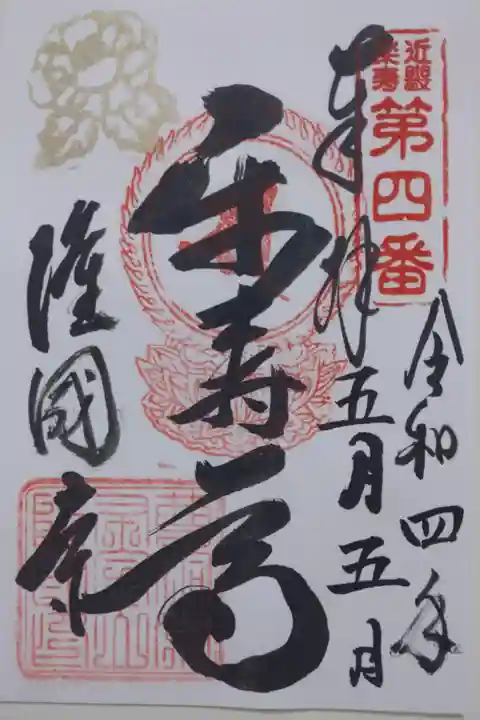 近畿
楽寿
第四番
奉拝
令和四年
五月五日
楽寿
隆國寺